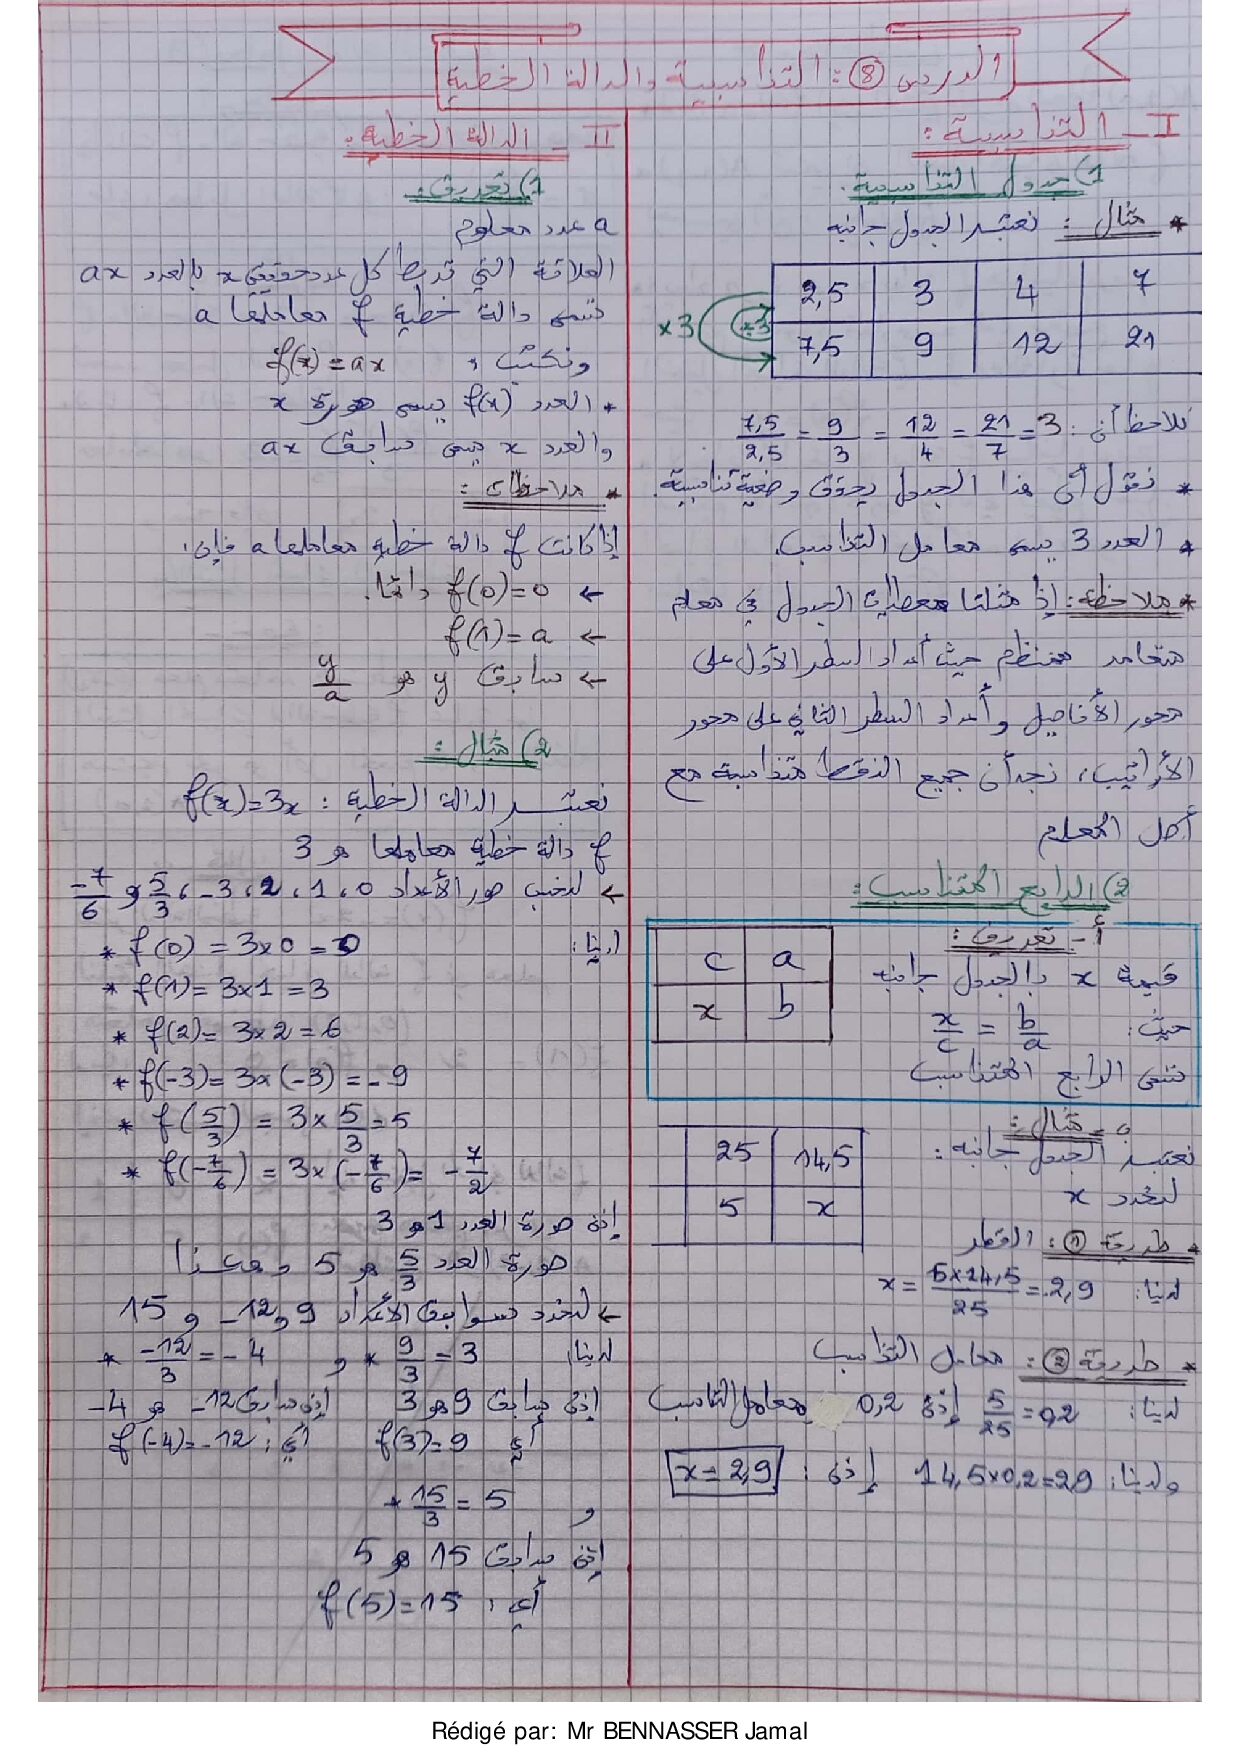 الدرس ⑧ : التناسبية والدالة الخطية
I - التناسبية :
1) جدول التناسبية.
* مثال : نعتبر الجدول جانبه
2,5 3 4 7
×3 ×3
7,5 9 12 21
نلاحظ أن : 7,5/2,5 = 9/3 = 12/4 = 21/7 = 3
* نقول أن هذا الجدول يحقق وضعية تناسبية.
* العدد 3 يسمى معامل التناسب.
* ملاحظة : إذا مثلنا معطيات الجدول في معلم
متعامد ممنظم حيث أعداد السطر الأول على
محور الأفاصيل وأعداد السطر الثاني على محور
الأراتيب، نجد أن جميع النقط متناسبة مع
أصل المعلم
2) الرابع المتناسب :
أ - تعريف :
قيمة x بالجدول جانبه
c a
x b
حيث : x/c = b/a
تسمى الرابع المتناسب
ب - مثال :
نعتبر الجدول جانبه :
25 14,5
5 x
لنحدد x
* طريقة ① : القطر
لدينا : x = 5×14,5/25 = 2,9
* طريقة ② : معامل التناسب
لدينا : 5/25 = 0,2 إذن 0,2 معامل التناسب
ولدينا : 14,5×0,2=2,9 إذن : x = 2,9
II - الدالة الخطية :
1) تعريف :
a عدد معلوم
العلاقة التي تربط كل عدد حقيقي x بالعدد ax
تسمى دالة خطية f معاملها a
ونكتب : f(x) = ax
* العدد f(x) يسمى صورة x
والعدد x يسمى سابق ax
* ملاحظات :
إذا كانت f دالة خطية معاملها a فإن :
← f(0)=0 دائما.
← f(1) = a
← سابق y هو y/a
2) مثال :
نعتبر الدالة الخطية : f(x)=3x
f دالة خطية معاملها هو 3
← لنحسب صور الأعداد 0 ، 1 ، 2 ، -3 ، 5/3 و -7/6
لدينا : * f(0) = 3×0 = 0
* f(1) = 3×1 = 3
* f(2) = 3×2 = 6
* f(-3) = 3×(-3) = -9
* f(5/3) = 3×5/3 = 5
* f(-7/6) = 3×(-7/6) = -7/2
إذن صورة العدد 1 هو 3
صورة العدد 5/3 هو 5 وهكذا
← لنحدد سوابق الأعداد 9 و -12 و 15
لدينا * 9/3 = 3 و * -12/3 = -4
إذن سابق 9 هو 3 إذن سابق -12 هو -4
أي f(3)=9 أي : f(-4)=-12
و * 15/3 = 5
إذن سابق 15 هو 5
أي : f(5)=15
Rédigé par: Mr BENNASSER Jamal